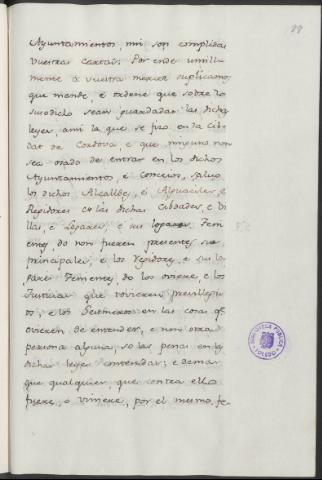 88
Ayuntamientos, nin son complidas
vuestras cartas: Por ende umill
mente a vuestra merced suplicamos,
que mande, e ordene que sobre lo
susodicho sean guardadas las dichas
leyes, ansi la que se fizo en la cib
dat de Cordova, e que ninguno non
sea osado de entrar en los dichos
Ayuntamientos e conceios, salvo
los dichos Alcalldes, e Alguaciles, e
Regidores en las dichas cibdades, e vi
llas, e logares, e sus logares teni
entes, do non fueren presentes sus
principales, e los regidores, e sus lo
gares tenientes, do los oviere, e los
Juradores que tovieren previllegi
os, e los Sesmeros en las cosas q
ovieren de entender, e non otra
persona alguna, so las penas en las
dichas leyes contenidas; e demas
que qualquier, que contra ello
fuere, o viniere, por el mesmo fe
BIBLIOTECA PUBLICA
TOLEDO